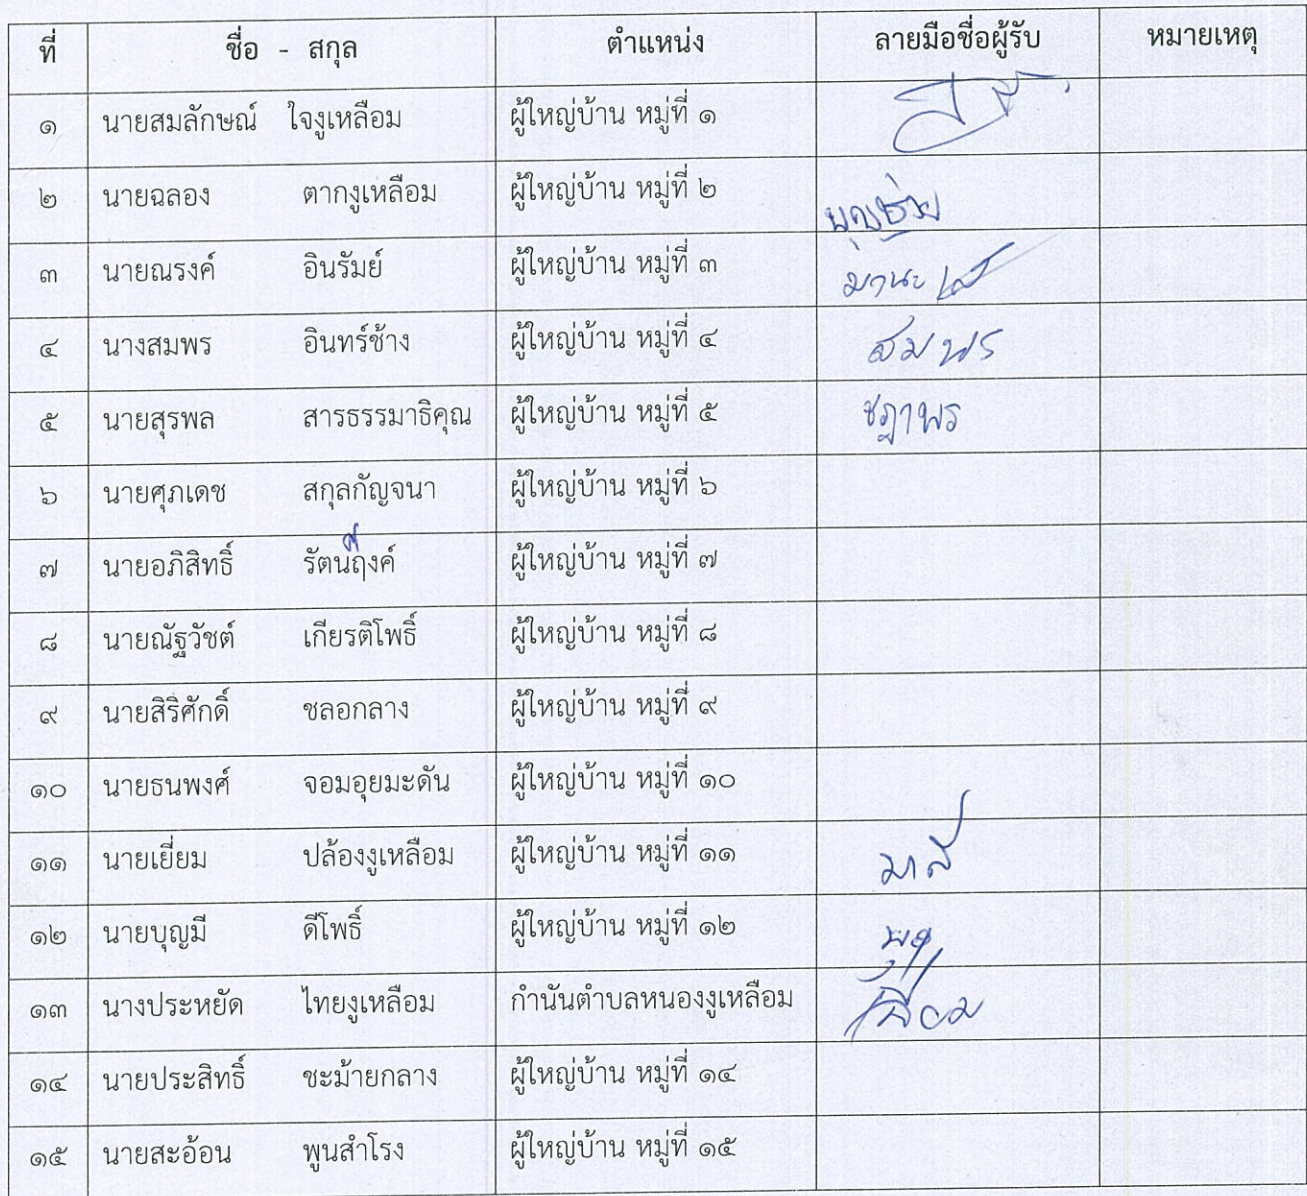 ที่ ชื่อ - สกุล ตำแหน่ง ลายมือชื่อผู้รับ หมายเหตุ
๑ นายสมลักษณ์ ใจงูเหลือม ผู้ใหญ่บ้าน หมู่ที่ ๑
๒ นายฉลอง ตากงูเหลือม ผู้ใหญ่บ้าน หมู่ที่ ๒ บุญช่วย
๓ นายณรงค์ อินรัมย์ ผู้ใหญ่บ้าน หมู่ที่ ๓ มานะ
๔ นางสมพร อินทร์ช้าง ผู้ใหญ่บ้าน หมู่ที่ ๔ สมพร
๕ นายสุรพล สารธรรมาธิคุณ ผู้ใหญ่บ้าน หมู่ที่ ๕ ชฎาพร
๖ นายศุภเดช สกุลกัญจนา ผู้ใหญ่บ้าน หมู่ที่ ๖
๗ นายอภิสิทธิ์ รัตนฤงค์ ผู้ใหญ่บ้าน หมู่ที่ ๗
๘ นายณัฐวัชต์ เกียรติโพธิ์ ผู้ใหญ่บ้าน หมู่ที่ ๘
๙ นายสิริศักดิ์ ชลอกลาง ผู้ใหญ่บ้าน หมู่ที่ ๙
๑๐ นายธนพงศ์ จอมอุยมะดัน ผู้ใหญ่บ้าน หมู่ที่ ๑๐
๑๑ นายเยี่ยม ปล้องงูเหลือม ผู้ใหญ่บ้าน หมู่ที่ ๑๑
๑๒ นายบุญมี ดีโพธิ์ ผู้ใหญ่บ้าน หมู่ที่ ๑๒
๑๓ นางประหยัด ไทยงูเหลือม กำนันตำบลหนองงูเหลือม
๑๔ นายประสิทธิ์ ชะม้ายกลาง ผู้ใหญ่บ้าน หมู่ที่ ๑๔
๑๕ นายสะอ้อน พูนสำโรง ผู้ใหญ่บ้าน หมู่ที่ ๑๕